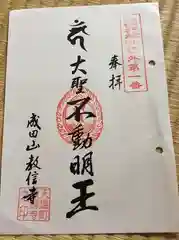 奉拝
外第一番
大聖不動明王
成田山教信寺